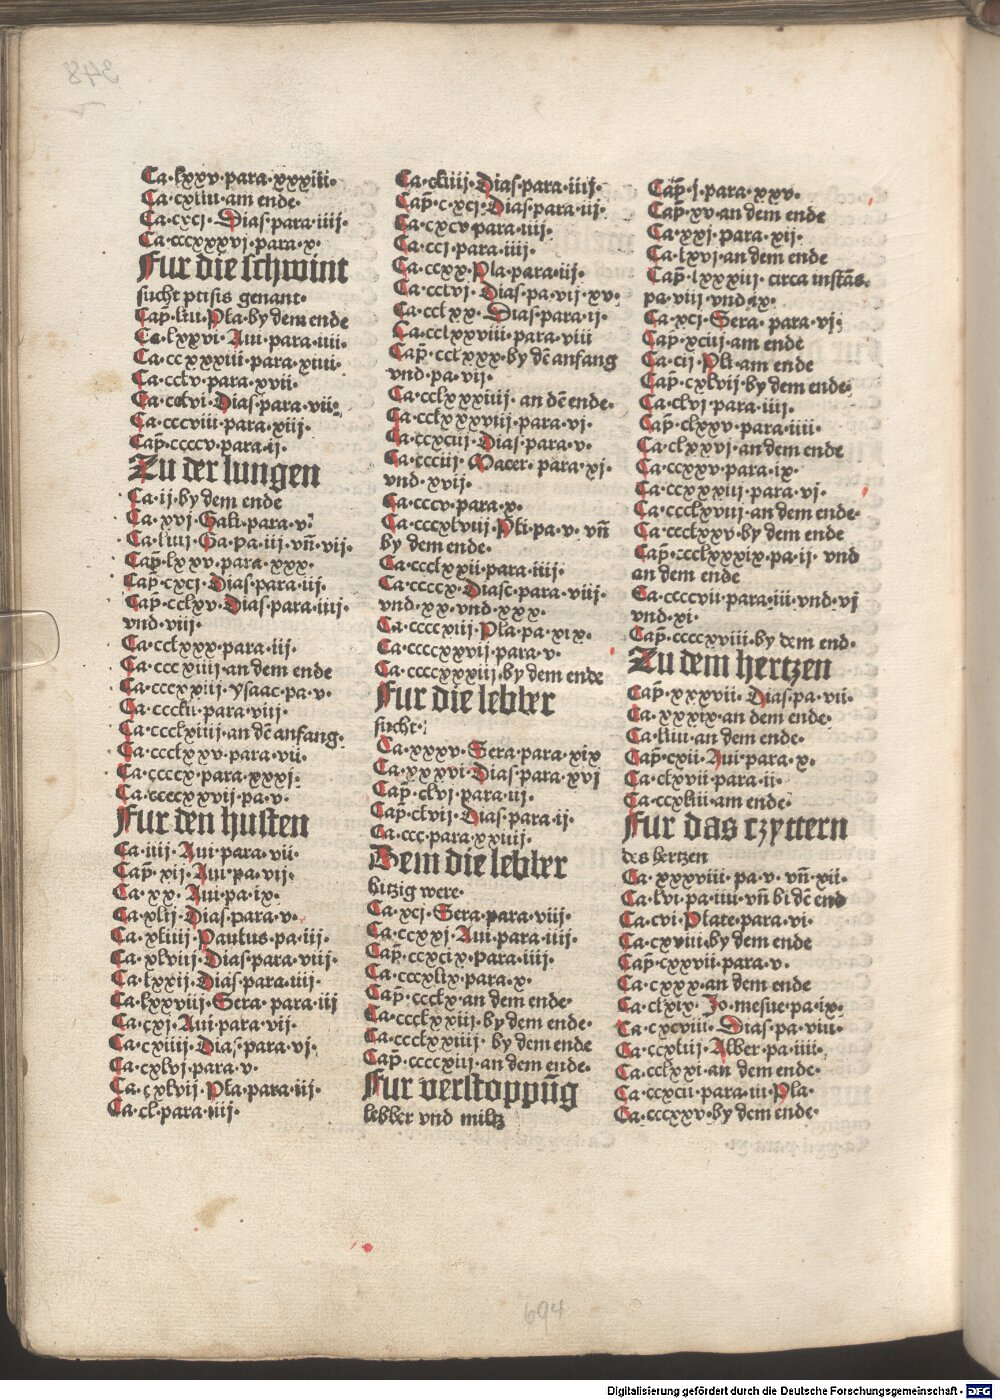 348
Ca·lxxv·para·xxxiii·
Ca·cxliii·am ende·
Ca·cxcj·Dias·para·iiij·
Ca·cccxxxvj·para·x·
Fur die schwint
sucht ptisis genant·
Cap̃·liii·Pla·by dem ende
Ca·lxxvi·Aui·para·iiii·
Ca·ccxxxiii·para·xiiii·
Ca·cclv·para·xvii·
Ca·cclvi·Dias·para·vii·
Ca·cccviii·para·xiij·
Cap̃·ccccv·para·ij·
Zu der lungen
Ca·ij·by dem ende
Ca·xvj·Gali·para·v·
Ca·liiij·Ga·pa·iij·vñ·vij·
Cap̃·lxxv·para·xxx·
Cap̃·cxcj·Dias·para·iij·
Cap̃·cclxv·Dias·para·iiij·
vnd·viij·
Ca·cclxxx·para·iij·
Ca·cccxiiij·an dem ende
Ca·cccxxiij·ysaac·pa·v·
Ca·ccclii·para·viij·
Ca·cccclxiiij·an dē anfang·
Ca·cccclxxv·para·vij·
Ca·ccccx·para·xxxj·
Ca·ccccxxvij·pa·v·
Fur den husten
Ca·iiij·Aui·para·vii·
Cap̃·xij·Aui·pa·vij·
Ca·xx·Aui·pa·ix·
Ca·xlij·Dias·para·v·
Ca·xliiij·Paulus·pa·iij·
Ca·xlviij·Dias·para·viij·
Ca·lxxij·Dias·para·iiij·
Ca·lxxviij·Sera·para·iij
Ca·cxj·Aui·para·vij·
Ca·cxiiij·Dias·para·vj·
Ca·cxlvj·para·v·
Ca·cxlvij·Pla·para·iij·
Ca·cl·para·iiij·
Ca·cliiij·Dias·para·iiij·
Cap̃·c·xcj·Dias·para·iij·
Ca·cxcv·para·iiij·
Ca·ccj·para·iiij·
Ca·ccxx·Pla·para·iij·
Ca·cclvj·Dias·pa·vij·xv·
Ca·cclxx·Dias·para·ij·
Ca·cclxxviii·para·viii
Cap̃·cclxxx·by dē anfang
vnd·pa·vij·
Ca·cclxxxiiij·an dē ende·
Ca·cclxxxviij·para·vj·
Ca·ccxciij·Dias·para·v·
Ca·ccciij·Macer·para·xj·
vnd·xvij·
Ca·cccv·para·x·
Ca·cccxlviij·Pli·pa·v·vñ
by dem ende·
Ca·ccclxxii·para·iiij·
Ca·ccccx·Diasc·para·viij·
vnd·xx·vnd·xxx·
Ca·ccccxiij·Pla·pa·xix·
Ca·ccccxxvij·para·v·
Ca·ccccxxxiij·by dem ende
Fur die lebber
sucht·
Ca·xxxv·Sera·para·xix
Ca·xxxvi·Dias·para·xvj
Cap̃·clvj·para·iij·
Cap̃·clvij·Dias·para·ij·
Ca·ccc·para·xxiiij·
Dem die lebber
hitzig were·
Ca·xcj·Sera·para·viij·
Ca·ccxxj·Aui·para·iiij·
Cap̃·ccxcix·para·iiij·
Ca·cccxlix·para·x·
Cap̃·ccclx·an dem ende·
Ca·cccclxxiij·by dem ende·
Ca·cccclxxiiij·by dem ende
Cap̃·ccccxiij·an dem ende·
Fur verstoppũg
lebber vnd miltz
Cap̃·j·para·xxv·
Cap̃·xv·an dem ende
Ca·xxj·para·xij·
Ca·lxvj·an dem ende
Cap̃·lxxxiij·circa instās·
pa·viij·vnd·ix·
Ca·xcj·Sera·para·vj·
Cap̃·xciij·am ende
Ca·cij·Pli·am ende
Cap̃·cxlvij·by dem ende·
Ca·clvj·para·iiij·
Cap̃·clxxv·para·iiii·
Ca·clxxvj·an dem ende
Ca·ccxxv·para·ix·
Ca·ccxxxiij·para·vj·
Ca·cccclxviij·an dem ende·
Ca·cccclxxv·by dem ende
Cap̃·cccclxxxix·pa·ij·vnd
an dem ende
Ca·ccccvii·para·iii·vnd·vj
vnd·xi·
Cap̃·ccccxviii·by dem end·
Zu dem hertzen
Cap̃·xxxvii·Dias·pa·vii·
Ca·xxxix·an dem ende·
Ca·liiii·an dem ende·
Cap̃·cxii·Aui·para·x·
Ca·clxvii·para·ii·
Ca·ccxliii·am ende·
Fur das tzyttern
des hertzen
Ca·xxxviii·pa·v·vñ·xii·
Ca·lvi·pa·iiii·vñ bi dē end
Ca·cvi·Plate·para·vi·
Ca·cxviii·by dem ende
Cap̃·cxxvii·para·v·
Ca·cxxx·an dem ende
Ca·clxix·Jo·mesue·pa·ix·
Ca·cxcviii·Dias·pa·viii·
Ca·ccxliij·Alber·pa·iiii·
Ca·cclxxi·an dem ende·
Ca·ccxcii·para·iii·Pla·
Ca·cccxxv·by dem ende·
694
Digitalisierung gefördert durch die Deutsche Forschungsgemeinschaft - DFG